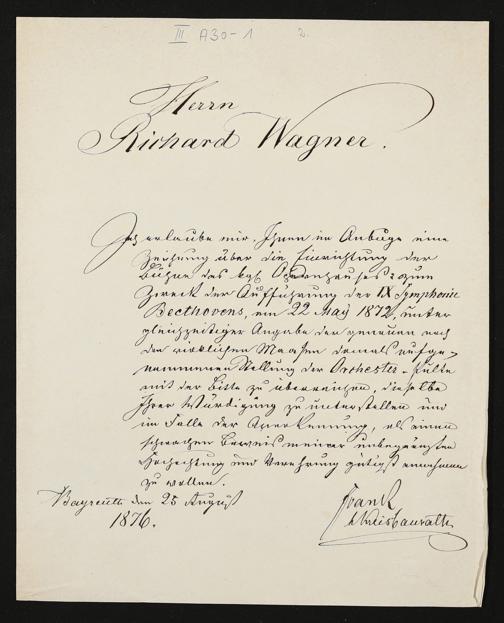 III A30-1 2.
Herrn
Richard Wagner.
Ich erlaube mir, Ihnen im Anbuge eine
Zeichnung über die Einrichtung der
Bühne des kgl. Opernhauses zum
Zweck der Aufführung der IX Symphonie
Beethovens, am 22 May 1872, unter
gleichzeitiger Angabe der genauen nach
den wirklichen Maasen damals aufge-
nommenen Stellung der Orchester-Pulte
mit der Bitte zu überreichen, dieselbe
Ihrer Würdigung zu unterstellen und
im Falle der Anerkennung, als einen
schwachen Beweis meiner unbegränzten
Hochachtung und Verehrung gütigst annehmen
zu wollen.
Bayreuth den 25 August
1876.
Frank
Kreisbaurath